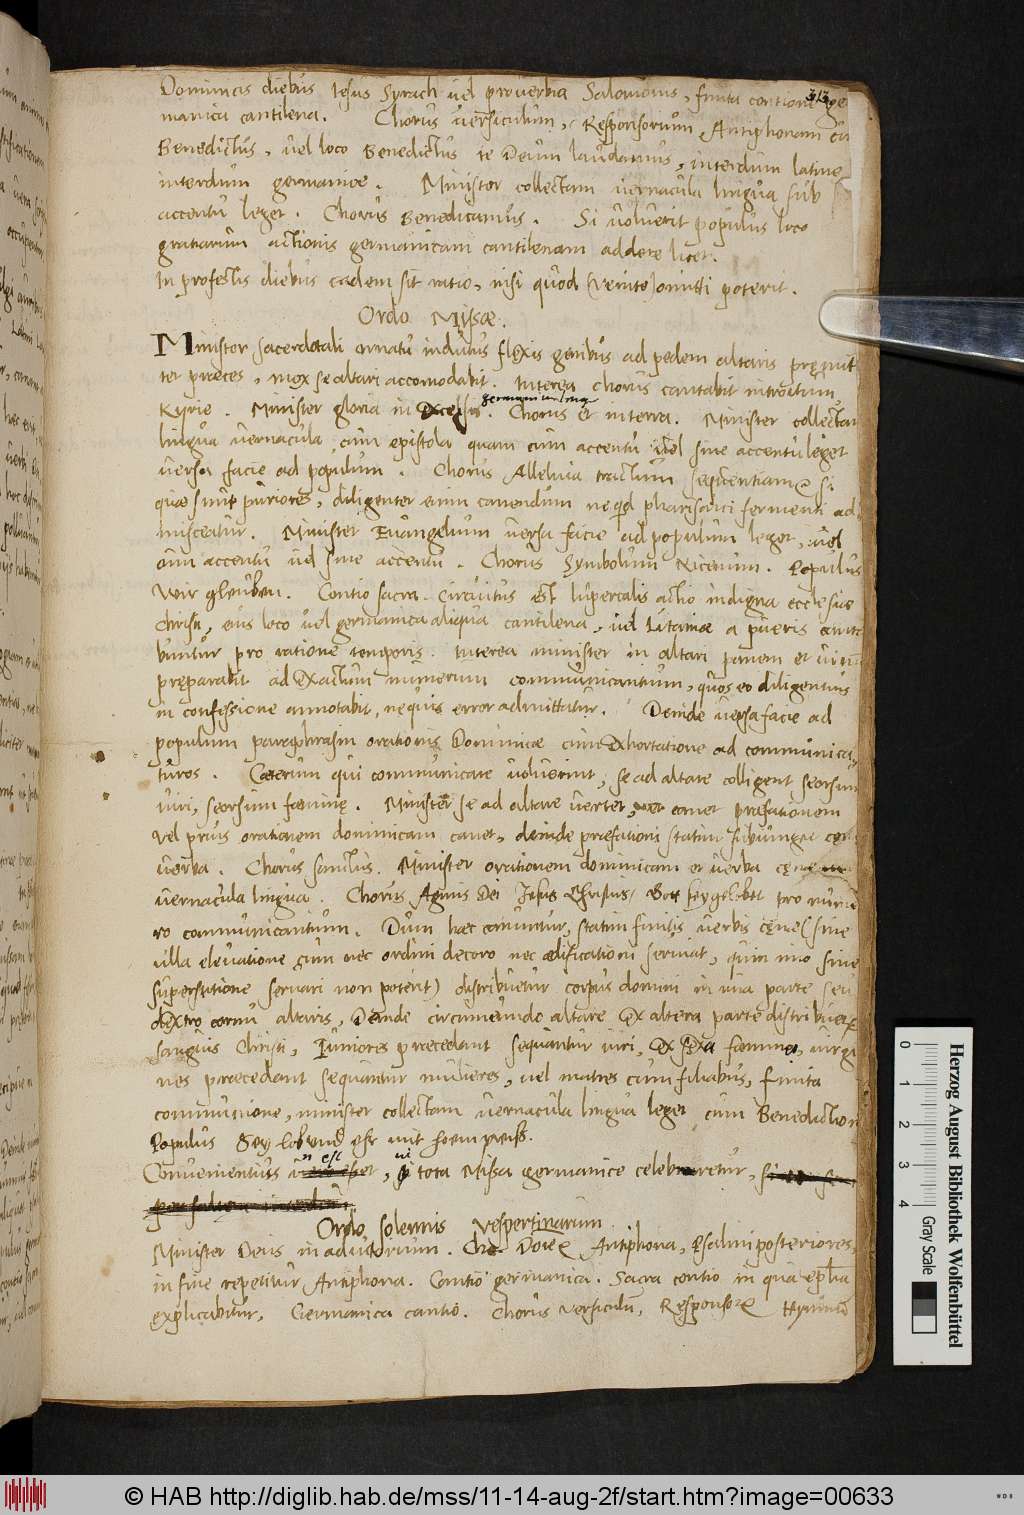 313
Dominicis diebus Iesus Syrach vel proverbia Salomonis, finita contione ger
manica cantilena. Chorus versiculum, Responsorium, Antiphonam cũ
Benedictus, vel loco Benedictus te Deum laudamus, interdum latine
interdum germanice. Minister collectam vernacula lingua sub
accentu leget. Chorus Benedicamus. Si voluerit populus loco
gratiarum actionis germanicam cantilenam addere licet.
In profestis diebus eadem sit ratio, nisi quod (venite) omitti poterit.
Ordo Missæ.
Minister sacerdotali ornatu indutus flexis genibus ad pedem altaris præmit
tet præces, mox se altari accomodabit. Interea chorus cantabit introitum
Kyrie. Minister gloria in Excelsis. Chorus et in terra. Minister collectam
lingua vernacula cum epistola quam cum accentu vel sine accentu leget
versa facie ad populum. Chorus Alleluia tractum sequentiam si
quæ sint puriores, diligenter enim cavendum ne qd pharisaici fermenti ad
misceatur. Minister Evangelium versa facie ad populum leget, vel
cum accentu vel sine accentu. Chorus Symbolum Nicenum. Populus
Wir glauben. Contio sacra. Circuitus est lupercalis actio indigna ecclesiæ
Christi, eius loco vel germanica aliqua cantilena, vel Litaniæ a pueris canta
buntur pro ratione temporis. Interea minister in altari panem et vinum
præparabit ad exactum numerum communicantium, quos eo diligentius
in confessione annotabit, ne quis error admittatur. Deinde versa facie ad
populum paraphrasin orationis Dominicæ cum exhortatione ad communica
turos. Cæterum qui communicare voluerint, se ad altare colligent seorsum
viri, seorsim fœminę. Minister se ad altare vertet, canet præfationem
vel prius orationem dominicam canet, deinde præfationi statim subiungat cęnę
verba. Chorus sanctus. Minister orationem dominicam et verba cęnę
vernacula lingua. Chorus Agnus Dei Jesus Christus, Gott sey gelobet pro nume
ro communicantium. Dum hæc canuntur, statim finitis verbis cęnę (sine
ulla elevatione cum nec ordini decoro nec ædificationi serviat, quin imo sine
superstitione servari non poterit) distribuetur corpus domini in una parte seu
dextro cornu altaris, Deinde circumeundo altare ex altera parte distribuatur
sanguis Christi, Iuniores præcedant sequantur viri, fœmineo, virgi
nes præcedant sequantur mulieres, vel matres cum filiabus, finita
communione, minister collectam vernacula lingua leget cum Benedictione
Populus Sey lob und ehr mit hohem preiß.
Convenientius est, ut tota Missa germanice celebraretur,
Ordo solennis Vespertinarum
Minister Deus in adiutorium. Chorus Antiphona, Psalmi posteriores,
in fine repetitur Antiphona. Cantio germanica. Sacra contio in qua epĩla
explicabitur, Germanica cantio. Chorus versiculũ, Respons Hymnũ
Herzog August Bibliothek Wolfenbüttel
0 1 2 3 4 Gray Scale
© HAB http://diglib.hab.de/mss/11-14-aug-2f/start.htm?image=00633